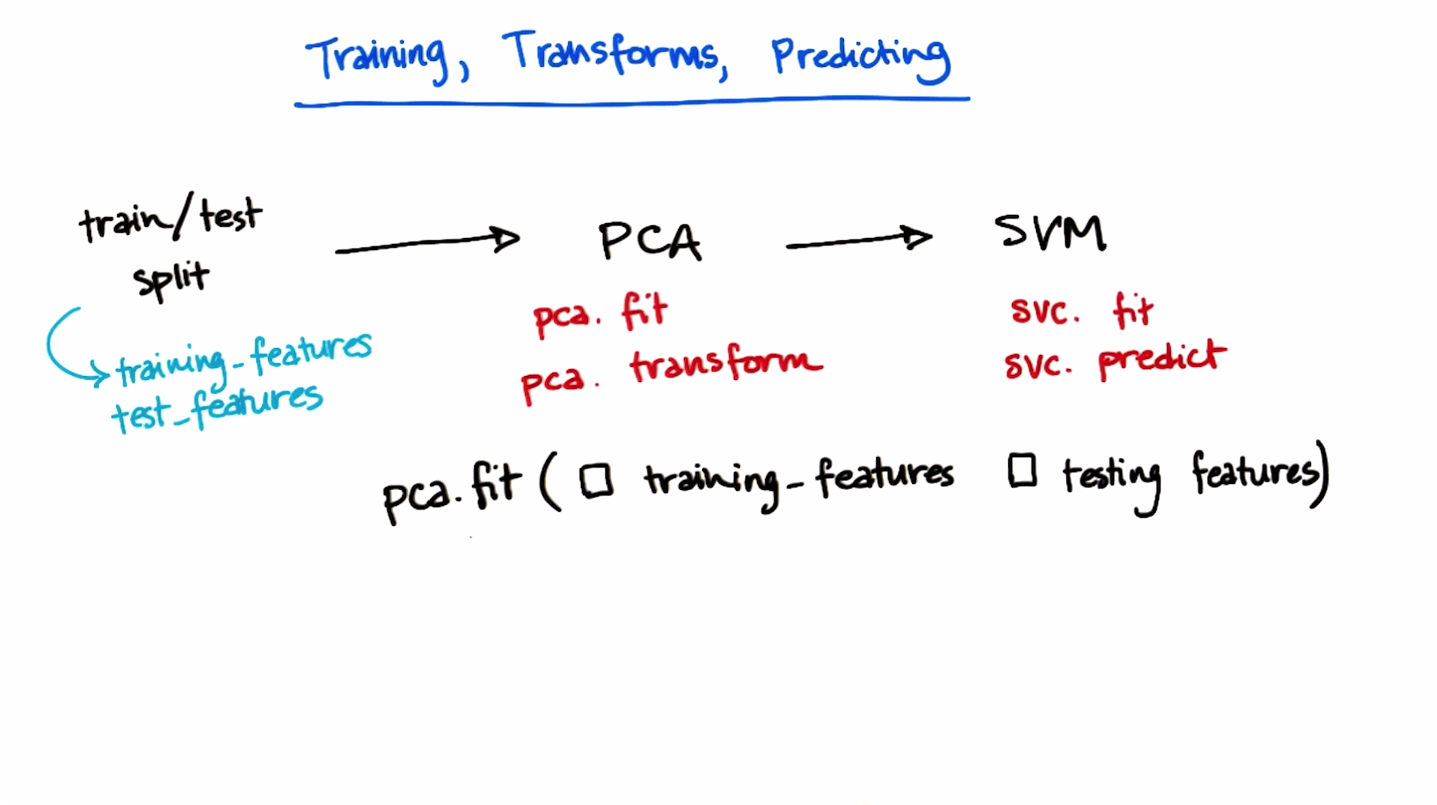 Training, Transforms, Predicting
train/test
split
training_features
test_features
PCA
pca. fit
pca. transform
SVM
svc. fit
svc. predict
pca.fit ( □ training_features □ testing features)